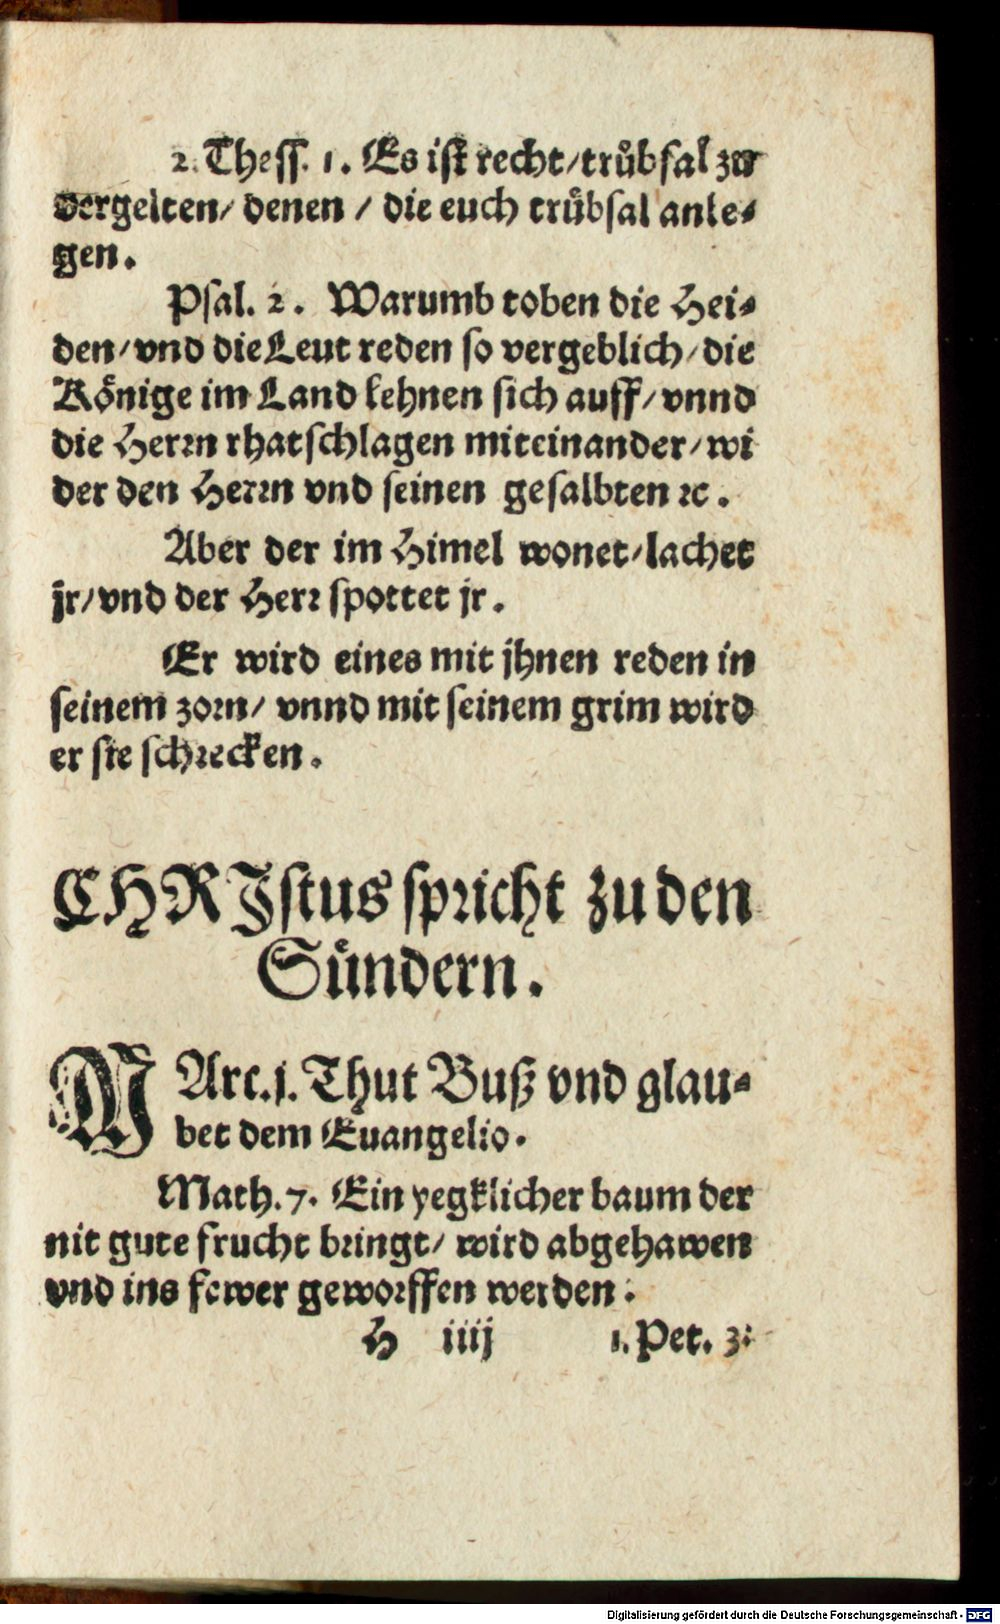 2. Thess. 1. Es ist recht/trübsal zu
vergelten/ denen / die euch trübsal anle-
gen.
Psal. 2. Warumb toben die Hei-
den/vnd die Leut reden so vergeblich/die
Könige im Land lehnen sich auff/vnnd
die Herrn rhatschlagen miteinander/wi
der den Herrn vnd seinen gesalbten ꝛc.
Aber der im Himel wonet/lachet
jr/vnd der Herr spottet jr.
Er wird eines mit jhnen reden in
seinem zorn/ vnnd mit seinem grim wird
er sie schrecken.
CHRJstus spricht zu den
Sündern.
MArc.j. Thut Buß vnd glau-
bet dem Euangelio.
Math.7. Ein yegklicher baum der
nit gute frucht bringt/ wird abgehawen
vnd ins fewer geworffen werden.
H iiij 1. Pet. 3:
Digitalisierung gefördert durch die Deutsche Forschungsgemeinschaft - DFG